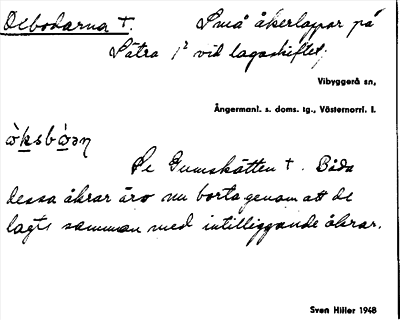 Olbodarna +. Små åkerlappar på
Sätra 1² vid lagaskiftet.
Vibyggerå sn,
Ångermanl. s. doms. tg., Västernorrl. l.
Se Gumskätten +. Båda
dessa åkrar äro nu borta genom att de
lagts samman med intilliggande åkrar.
Sven Hiller 1948